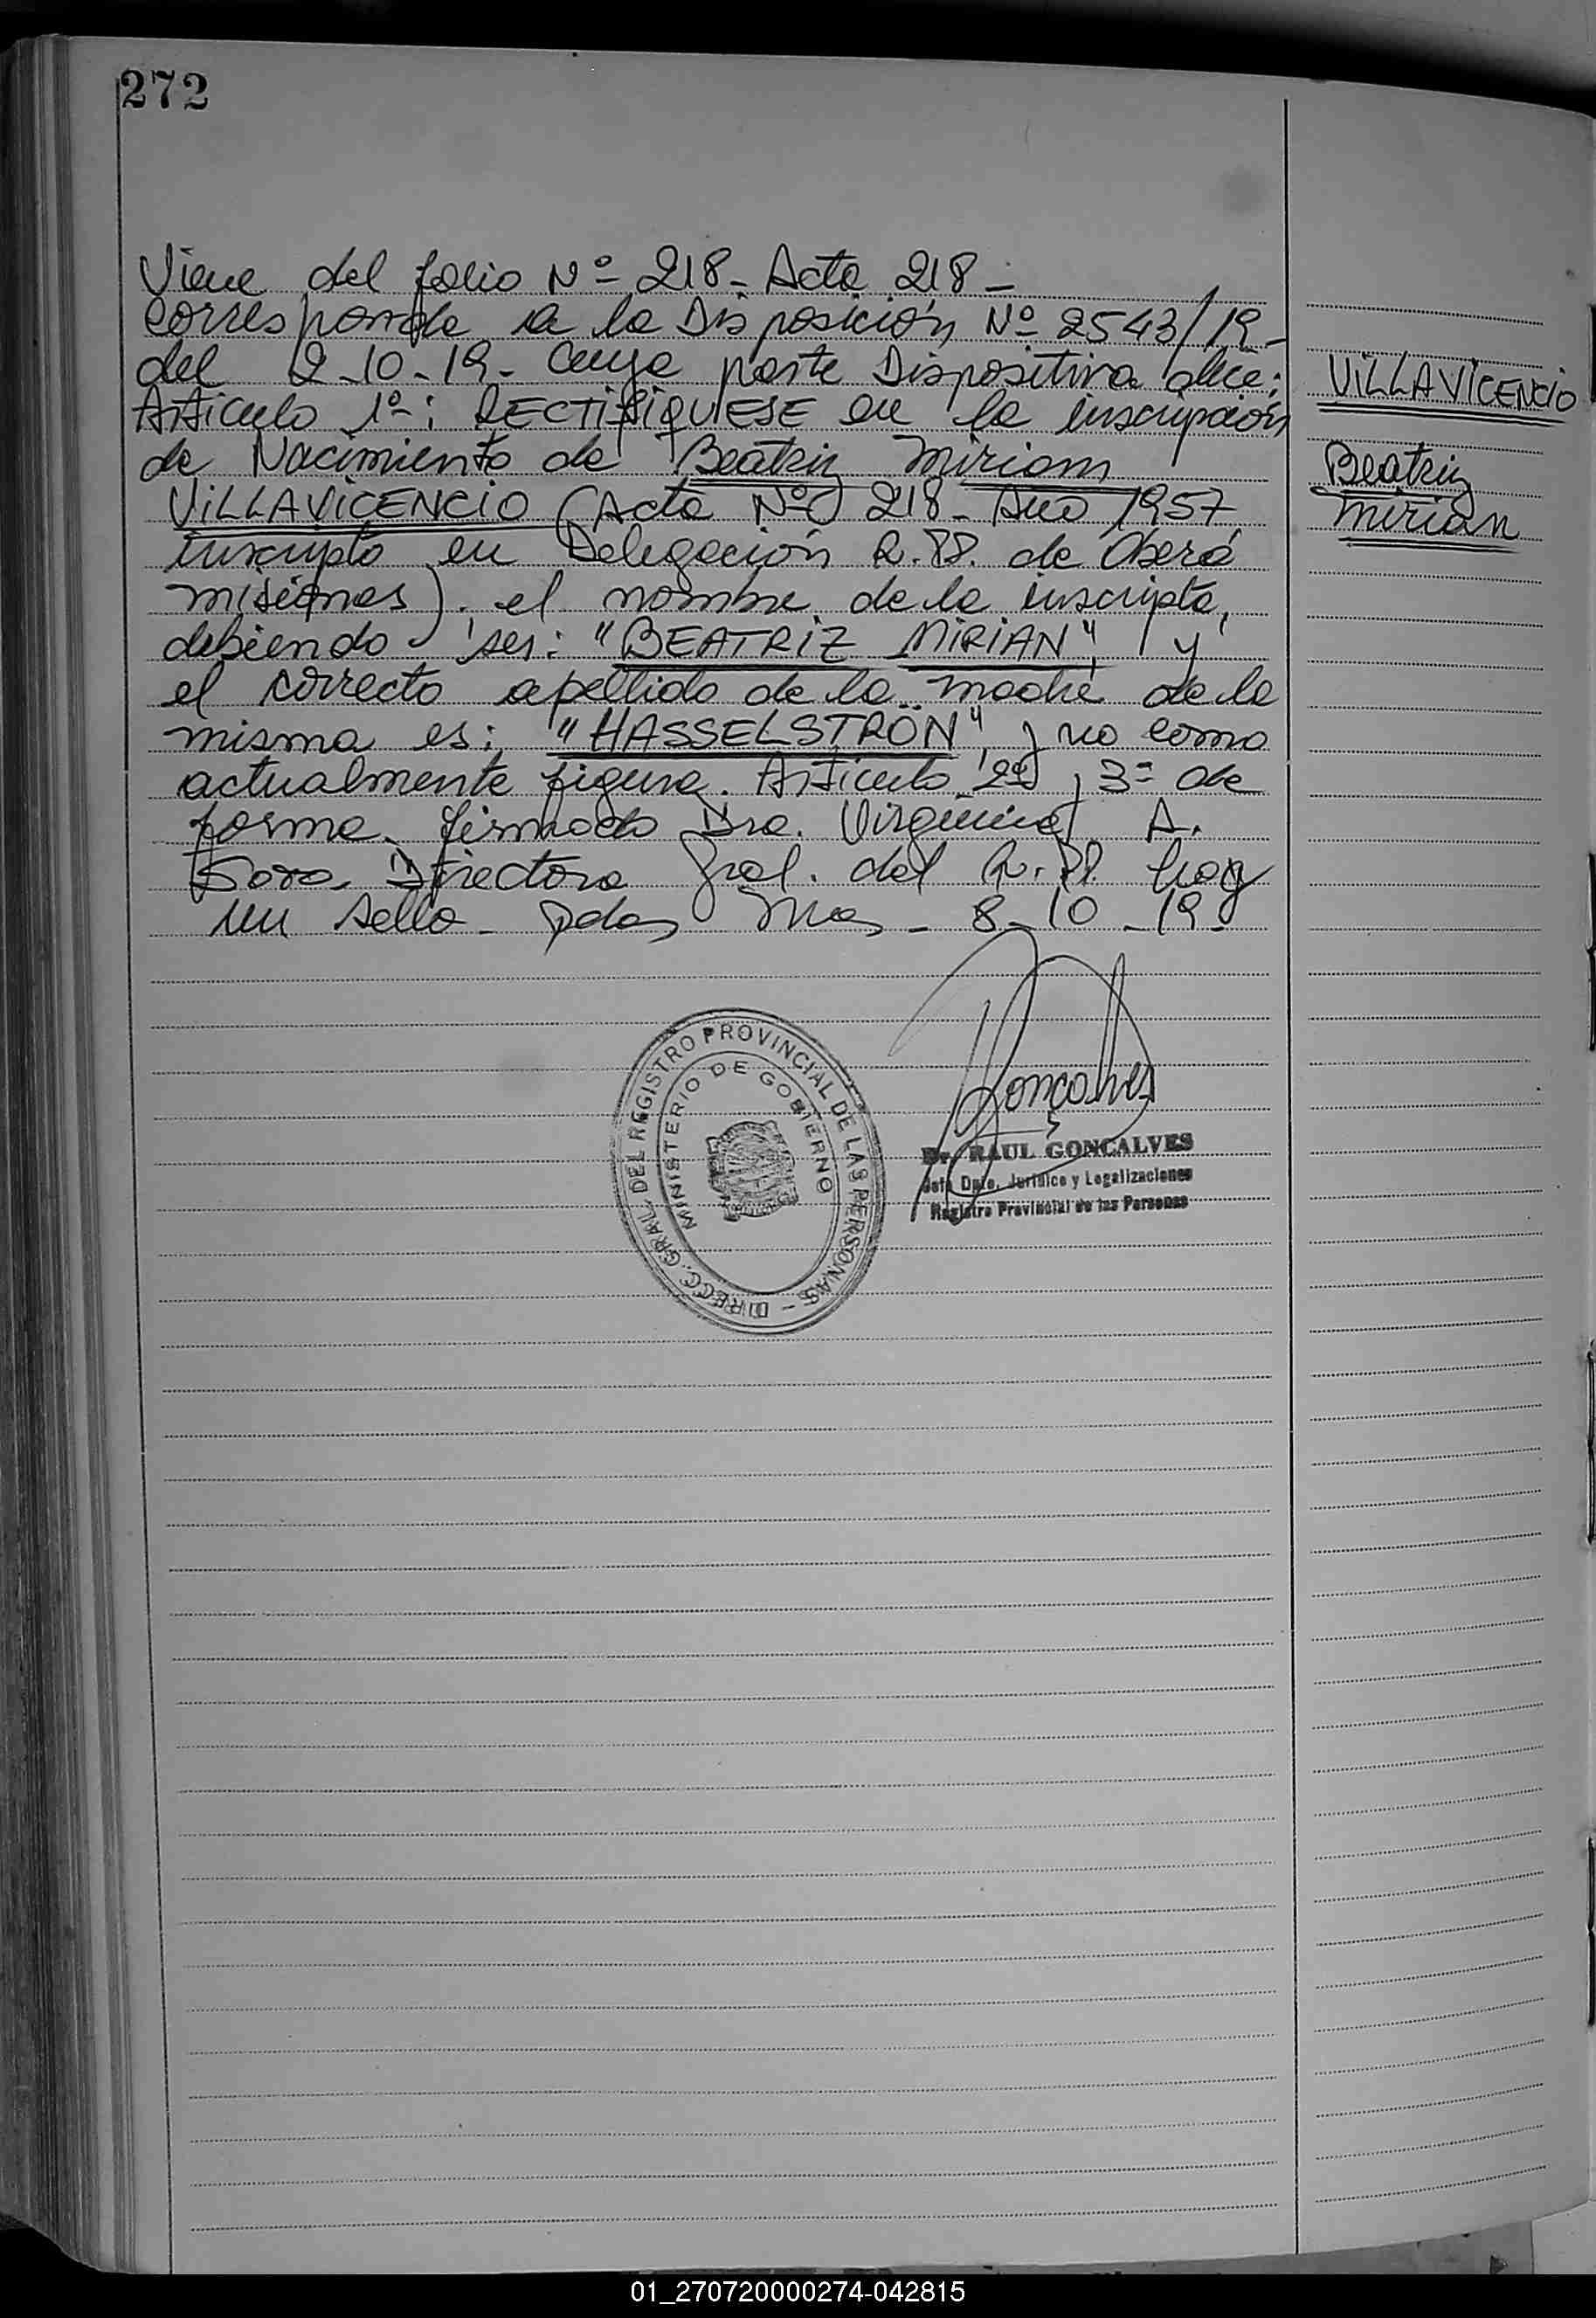 272
Viene del folio Nº 218 - Acta 218 -
Corresponde a la Disposición Nº 2543/19 -
del 2-10-19 - Cuya parte Dispositiva dice:
Artículo 1º: RECTIFIQUESE en la inscripción
de Nacimiento de Beatriz Miriam
VILLAVICENCIO (Acta Nº 218 - Año 1957
inscripta en Delegación R.PP. de Oberá
misiones). el nombre de la inscripta,
debiendo ser: "BEATRIZ MIRIAN", y
el correcto apellido de la madre de la
misma es: "HASSELSTRÖN", y no como
actualmente figura. Artículo 2º y 3º de
forma. firmado Dra. Virginia A.
Directora Gral. del R.PP. hay
un sello - Pdas Mnes - 8-10-19.
VILLAVICENCIO
Beatriz
Mirian
DIRECC. GRAL. DEL REGISTRO PROVINCIAL DE LAS PERSONAS -
MINISTERIO DE GOBIERNO
Gonçalves
Dr. RAUL GONCALVES
Jefe Dpto. Jurídico y Legalizaciones
Registro Provincial de las Personas
01_270720000274-042815